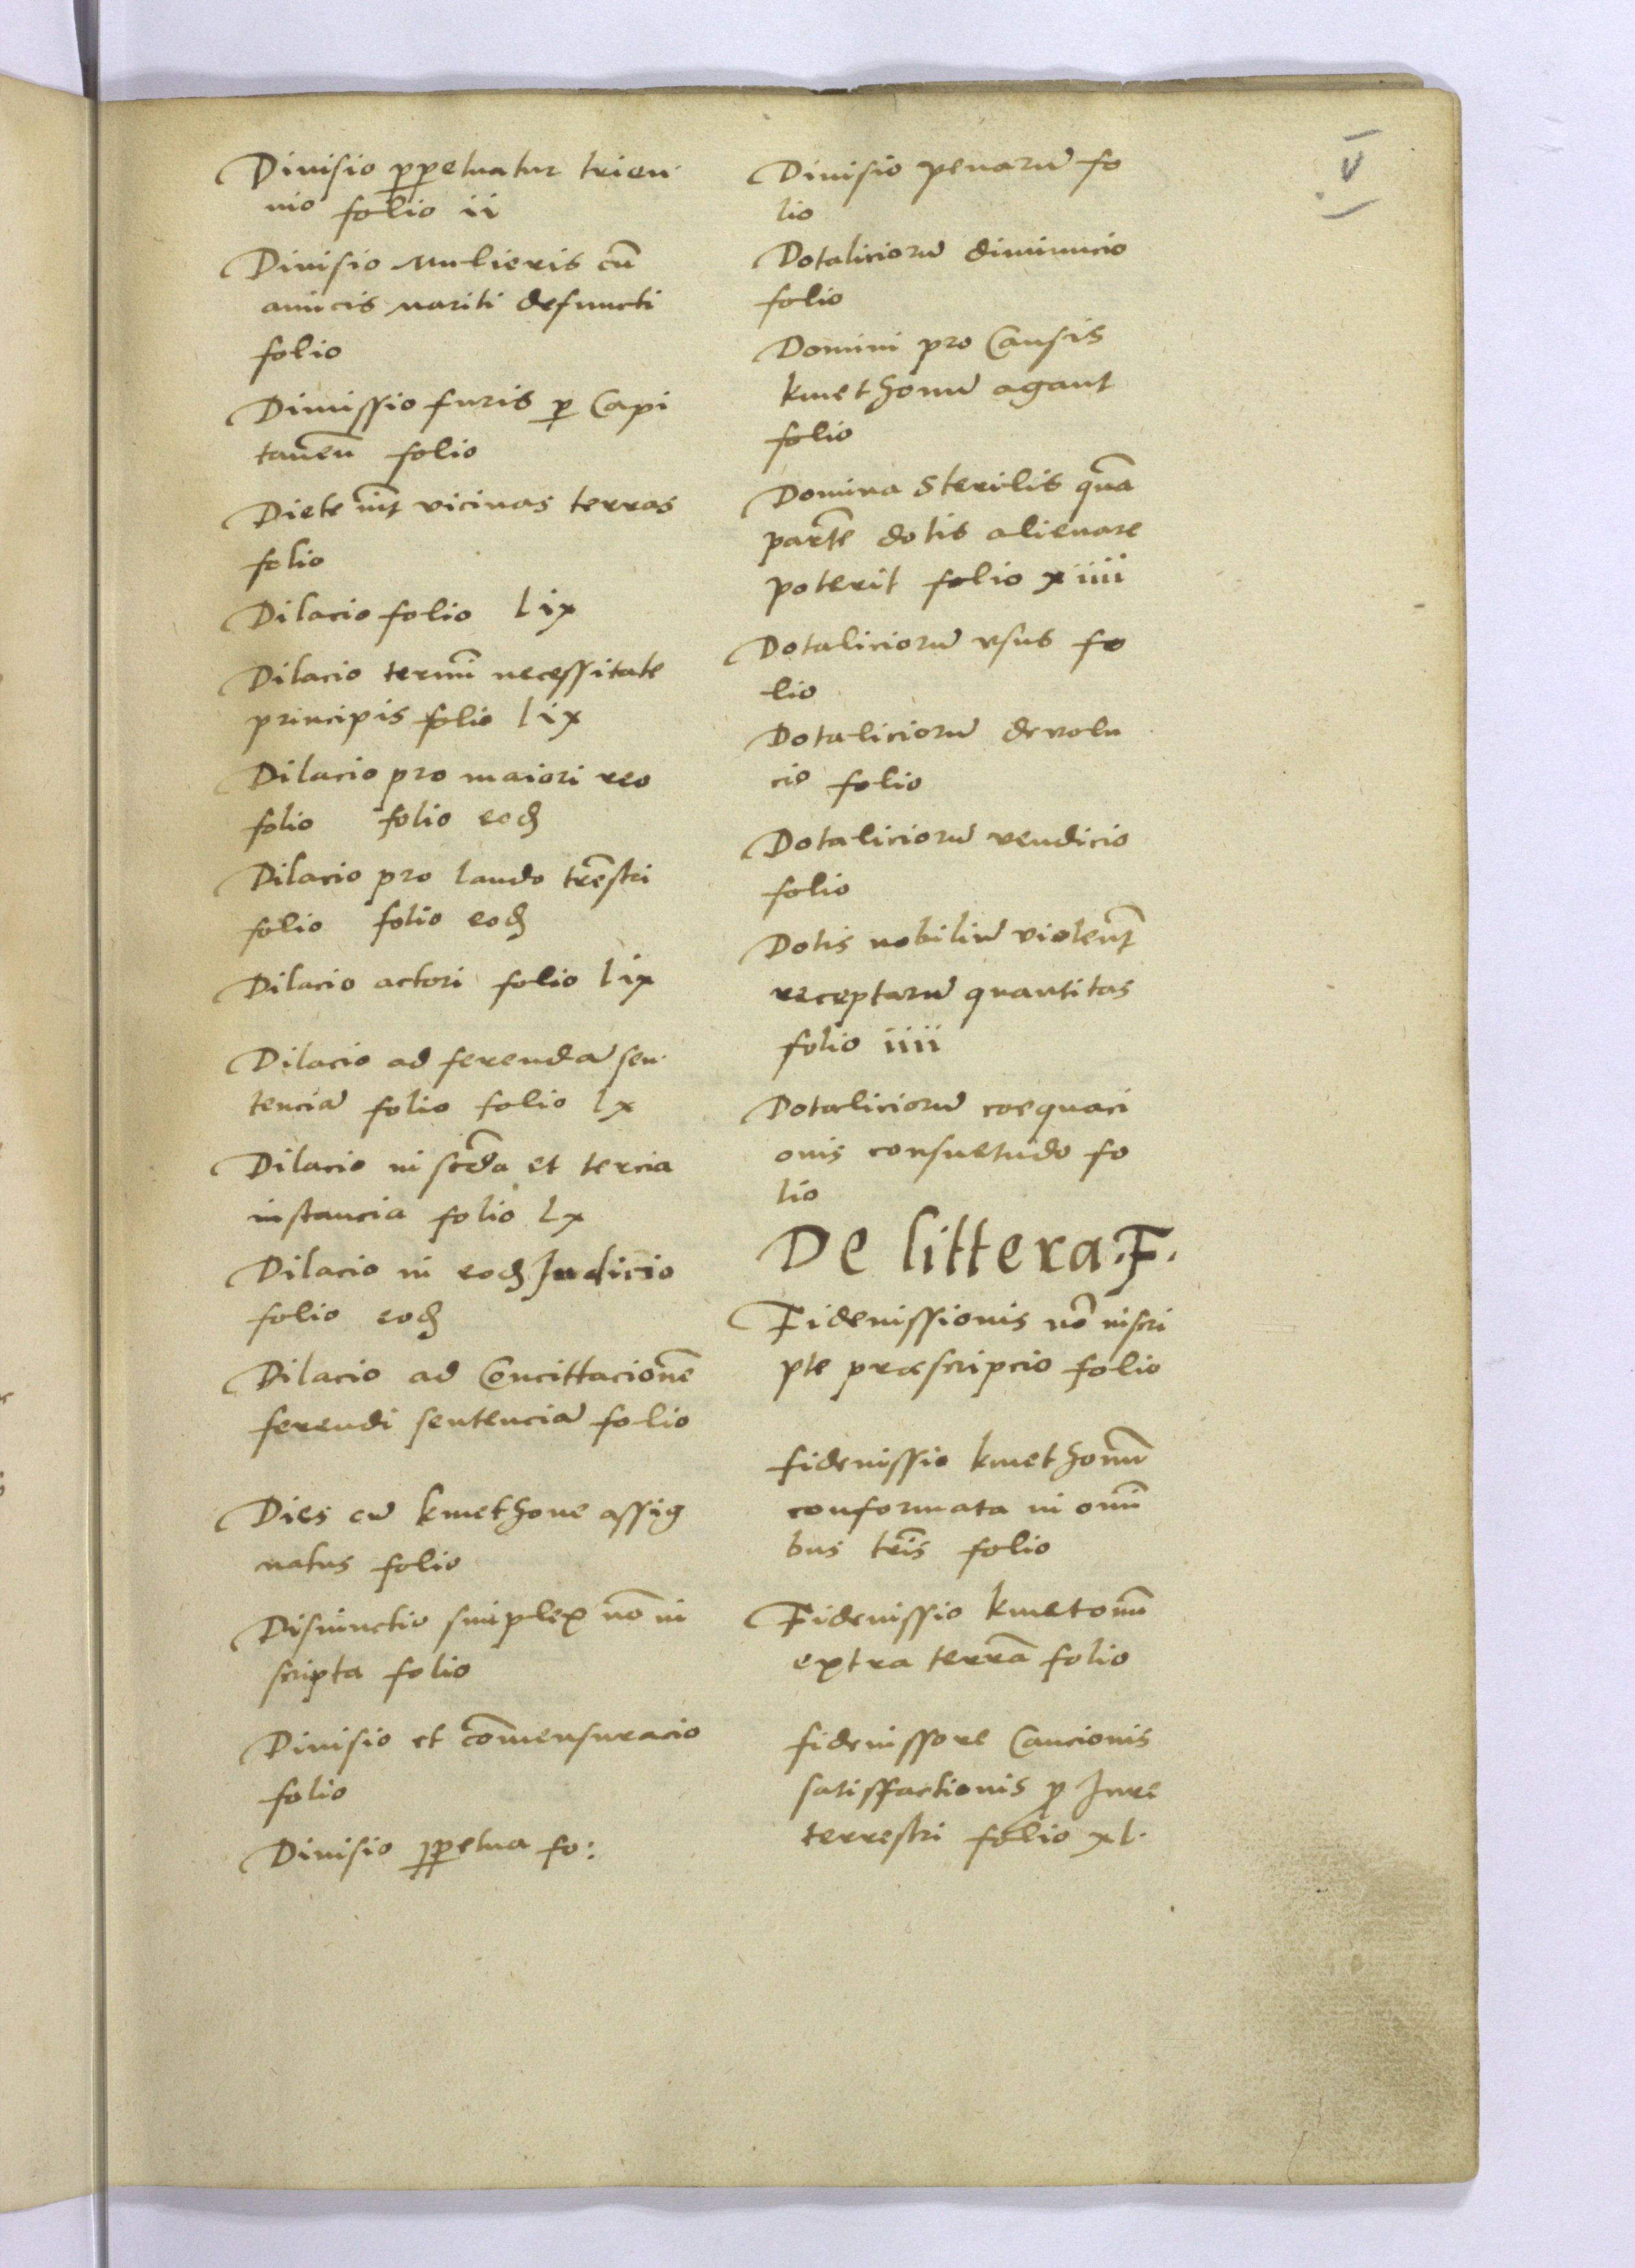 V
Diuisio ꝑpetuatur trien
nio folio ii
Diuisio Mulieris cū
amicis mariti defuncti
folio
Dimissio furis ꝑ Capi
taneū folio
Diete int̄ vicinas terras
folio
Dilacio folio lix
Dilacio termī necessitate
principis folio lix
Dilacio pro maiori reo
folio folio eodꝫ
Dilacio pro laudo tr̄estri
folio folio eodꝫ
Dilacio actori folio lix
Dilacio ad ferendā sen
tenciā folio folio lx
Dilacio in scd̄a et tercia
instancia folio lx
Dilacio in eodꝫ Judicio
folio eodꝫ
Dilacio ad Concittacionē
ferendi sentenciā folio
Dies cū kmethone assig
natus folio
Disiunctio simplex nō in
scripta folio
Diuisio et cōmensuracio
folio
Diuisio ꝑpetua fo:
Diuisio penarū fo
lio
Dotaliciorū diminucio
folio
Domini pro Causis
kmethonū agant
folio
Domina Sterilis quā
partē dotis alienare
poterit folio xiiii
Dotaliciorū vsus fo
lio
Dotaliciorū deuolu
cio folio
Dotaliciorū vendicio
folio
Dotis nobiliū violent̄
receptarū quantitas
folio iiii
Dotaliciorū coequaci
onis consuetudo fo
lio
De littera .F.
Fideiussionis nō inscri
pte præscripcio folio
fideiussio kmethonū
conformata in omī
bus tr̄is folio
Fideiussio kmetonū
extra terrā folio
fideiussore Caucionis
satisfactionis ꝓ Jure
terrestri folio xl.